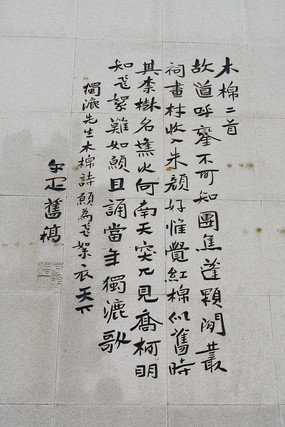 木棉二首
故道呼鸞不可知團焦蓬顆閙叢
祠畫材收入朱顏好惟覺紅棉似舊時
其柰樹名烽火何南天突兀見喬柯明
知花絮難如願且誦當年獨漉歌
獨漉先生木棉詩願為花絮衣天下
尔疋舊稿